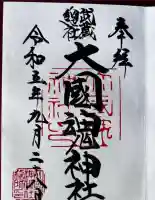 奉拝
武蔵
總社
大國魂神社
令和五年九月二十八日